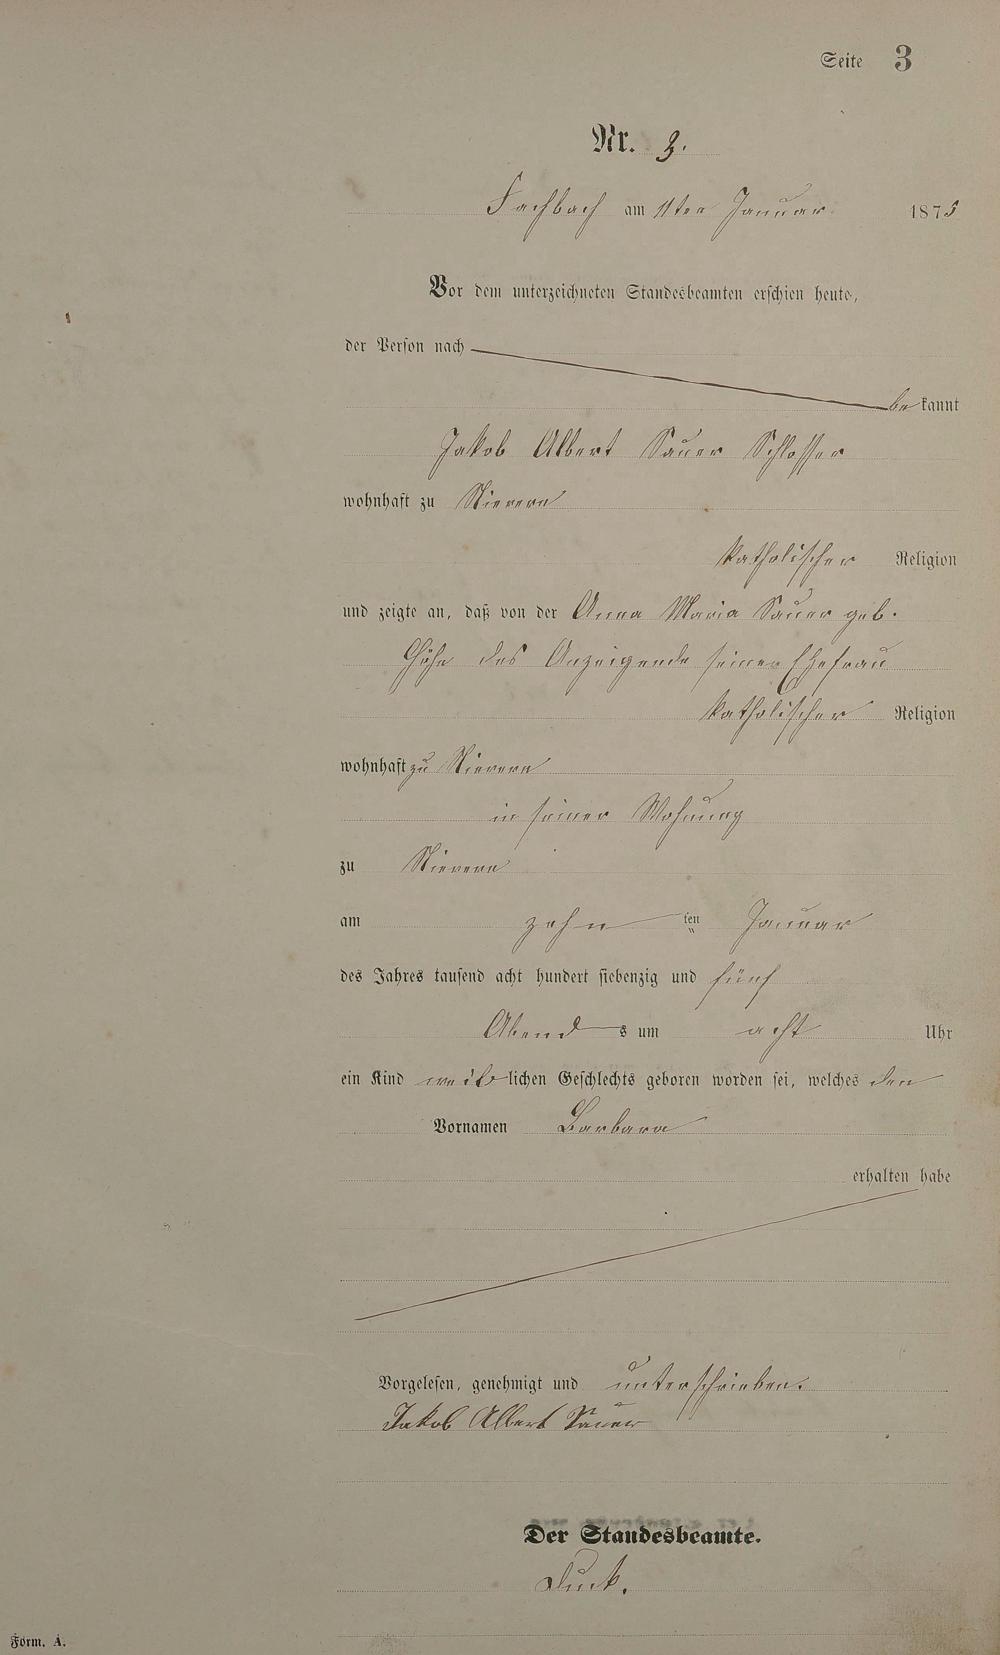 Seite 3
Nr. 3.
Fachbach am 11ten Januar 1875
Vor dem unterzeichneten Standesbeamten erschien heute,
der Person nach
bekannt
Jakob Albert Sauer Schlosser
wohnhaft zu Nievern
katholischer Religion
und zeigte an, daß von der Anna Maria Sauer geb.
des Anzeigende seiner Ehefrau
katholischer Religion
wohnhaft zu Nievern
in seiner Wohnung
zu Nievern
am zehn ten Januar
des Jahres tausend acht hundert siebenzig und fünf
Abend s um acht Uhr
ein Kind weiblichen Geschlechts geboren worden sei, welches den
Vornamen Barbara
erhalten habe
Vorgelesen, genehmigt und unterschrieben.
Jakob Albert Sauer
Der Standesbeamte.
Form. A.